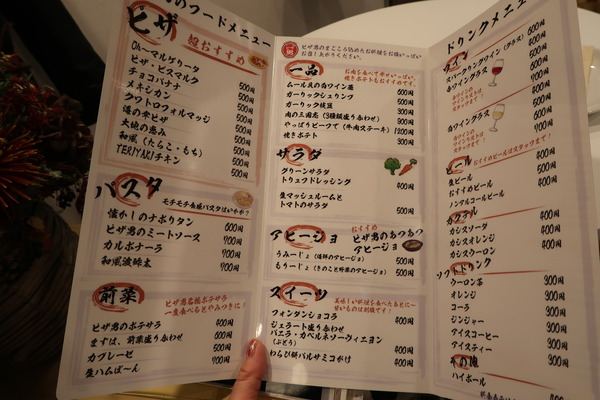 のフードメニュー
ピザ
超おすすめ
OH〜マルゲリータ 500円
ピザ・ビスマルク 500円
チョコバナナ 500円
メキシカン 500円
クワトロフォルマッジ 500円
海の幸ピザ 500円
大地の恵み 500円
和風（たらこ・もち） 500円
TERIYAKIチキン 500円
パスタ
モチモチ食感パスタはいかが？
懐かしのナポリタン 600円
ピザ男のミートソース 700円
カルボナーラ 700円
和風 700円
前菜
ピザ男名物ポテサラ
一度食べるとやみつきに！
ピザ男のポテサラ 400円
まずは、前菜盛り合わせ 600円
カプレーゼ 500円
生ハムば〜ん 700円
ピザ男のまごころ込めたお料理をお腹いっぱい
お召し上がりください。
一品
お肉を食べて幸せいっぱい。
焼きポテトもおすすめです。
ムール貝の白ワイン蒸 600円
ガーリックシュリンプ 500円
ガーリック枝豆 300円
肉の三国志（3種級盛り合わせ） 500円
やっぱりビーフで（牛肉ステーキ） 1200円
焼きポテト 300円
サラダ
グリーンサラダ
トリュフドレッシング 400円
生マッシュルームと
トマトのサラダ 500円
アヒージョ
おすすめ
ピザ男のあつあつ
アヒージョ
うみーじょ（海鮮のアヒージョ） 500円
もりーじょ（きのこと野菜のアヒージョ） 500円
スイーツ
美味しい料理を食べたあとに〜
甘いものは別腹です！
フォンダンショコラ 400円
ジェラート盛り合わせ
バニラ・カベルネソーヴィニヨン
（ぶどう） 400円
わらび餅バルサミコがけ 400円
ドリンクメニュー
ワイン
スパークリングワイン（グラス） 600円
赤ワイングラス 500円
600円
700円
白ワイングラス 500円
600円
700円
ビール
おすすめビールはスタッフまで！
生ビール 500円
おすすめビール
ノンアルコールビール 400円
カクテル
カシスソーダ 400円
カシスオレンジ 400円
カシスウーロン 400円
ソフトドリンク
ウーロン茶 300円
オレンジ 300円
コーラ 300円
ジンジャー 300円
アイスコーヒー 300円
アイスティー 300円
その他
ハイボール 400円